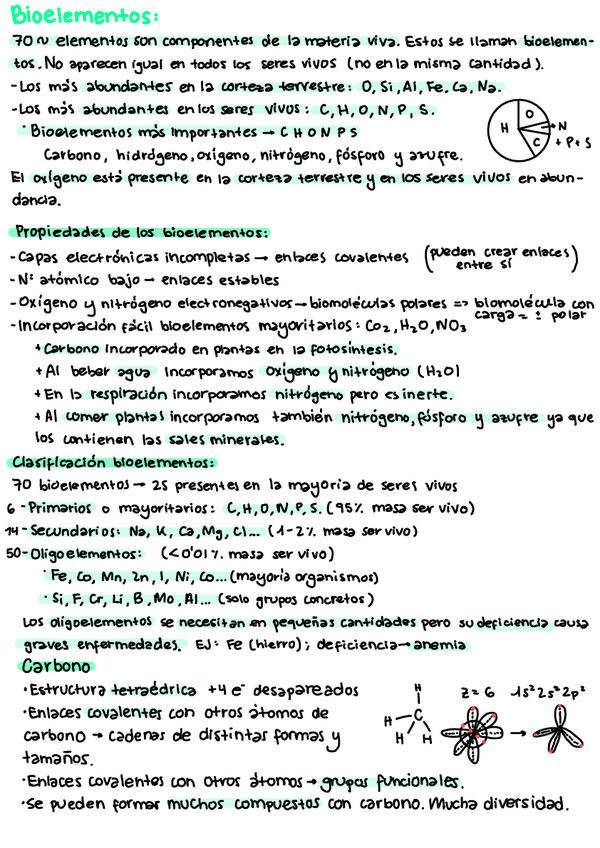 Bioelementos:
70 ~ elementos son componentes de la materia viva. Estos se llaman bioelemen-
tos. No aparecen igual en todos los seres vivos (no en la misma cantidad).
- Los más abundantes en la corteza terrestre: O, Si, Al, Fe, Ca, Na.
- Los más abundantes en los seres vivos: C, H, O, N, P, S.
· Bioelementos más importantes → C H O N P S
Carbono, hidrógeno, oxígeno, nitrógeno, fósforo y azufre.
H O N C + P + S
El oxígeno está presente en la corteza terrestre y en los seres vivos en abun-
dancia.
Propiedades de los bioelementos:
- Capas electrónicas incompletas → enlaces covalentes (pueden crear enlaces entre sí)
- Nº atómico bajo → enlaces estables
- Oxígeno y nitrógeno electronegativos → biomoléculas polares => biomolécula con
carga = ± polar
- Incorporación fácil bioelementos mayoritarios: Co2, H2O, NO3
+ Carbono incorporado en plantas en la fotosíntesis.
+ Al beber agua incorporamos oxígeno y nitrógeno (H2O)
+ En la respiración incorporamos nitrógeno pero es inerte.
+ Al comer plantas incorporamos también nitrógeno, fósforo y azufre ya que
los contienen las sales minerales.
Clasificación bioelementos:
70 bioelementos → 25 presentes en la mayoría de seres vivos
6 - Primarios o mayoritarios: C, H, O, N, P, S. (95% masa ser vivo)
14 - Secundarios: Na, K, Ca, Mg, Cl... (1-2% masa ser vivo)
50 - Oligoelementos: (<0'01% masa ser vivo)
· Fe, Co, Mn, Zn, I, Ni, Co... (mayoría organismos)
· Si, F, Cr, Li, B, Mo, Al... (solo grupos concretos)
Los oligoelementos se necesitan en pequeñas cantidades pero su deficiencia causa
graves enfermedades. EJ: Fe (hierro); deficiencia → anemia
Carbono
· Estructura tetraédrica +4 e- desapareados
· Enlaces covalentes con otros átomos de
carbono → cadenas de distintas formas y
tamaños.
H
H C H H
Z = 6 1s² 2s² 2p²
· Enlaces covalentes con otros átomos → grupos funcionales.
· Se pueden formar muchos compuestos con carbono. Mucha diversidad.